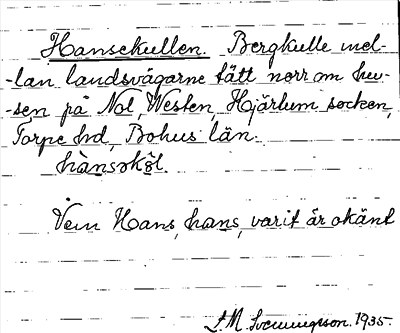 Hansekullen. Bergkulle mel-
-lan landsvägarne tätt norr om hu-
-sen på Nol, Westen, Hjärtum socken,
Torpe hd, Bohus län.
hànsəkö̀l.
Vem Hans, hans, varit är okänt
J. M. Svenningsson. 1935.